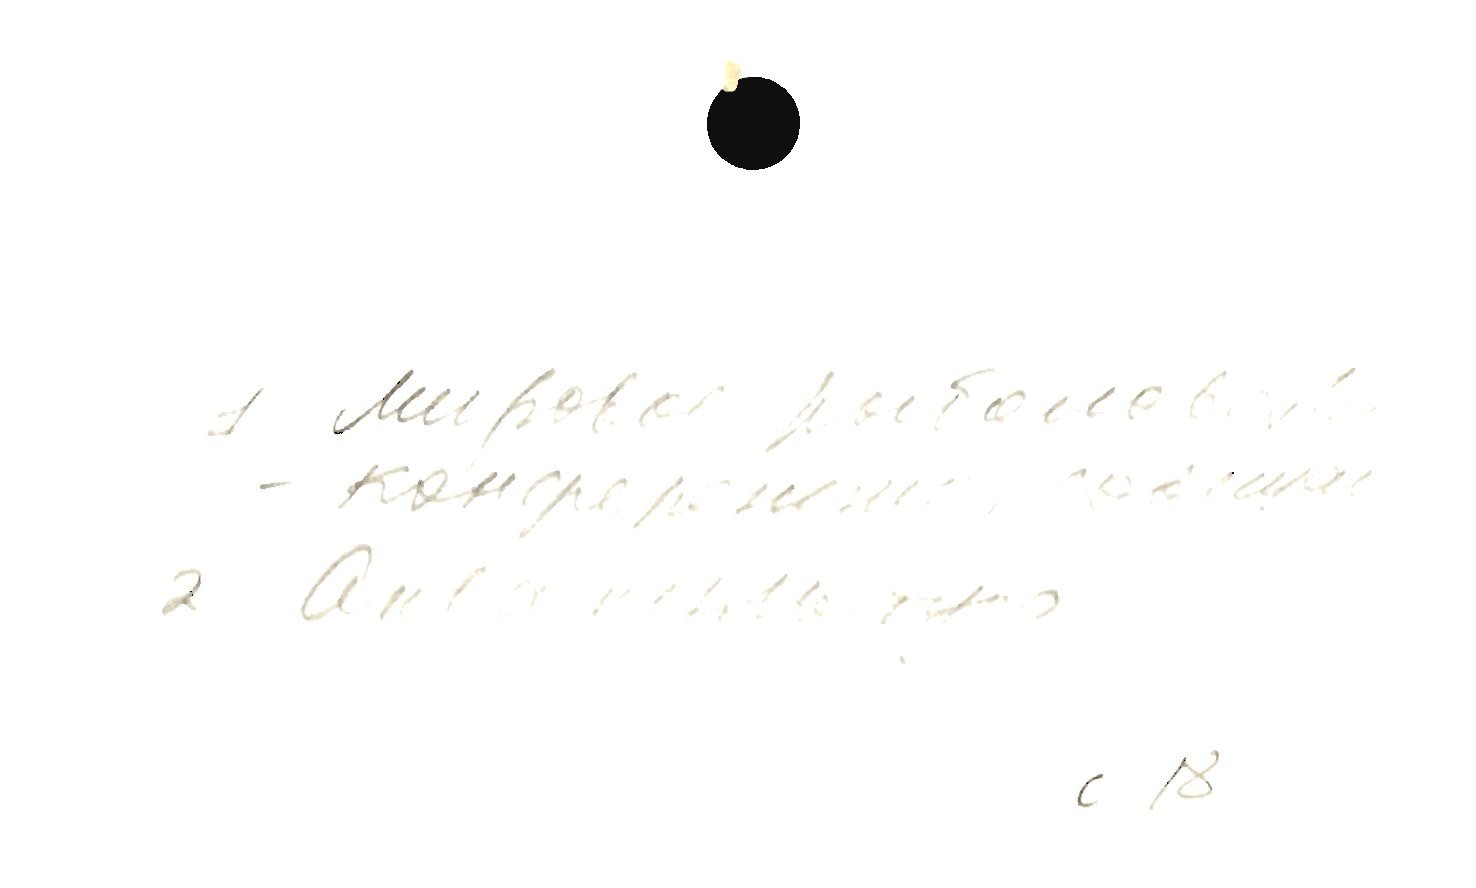 1 Мировое рыболовство
- конференции, совещан
2
с 18